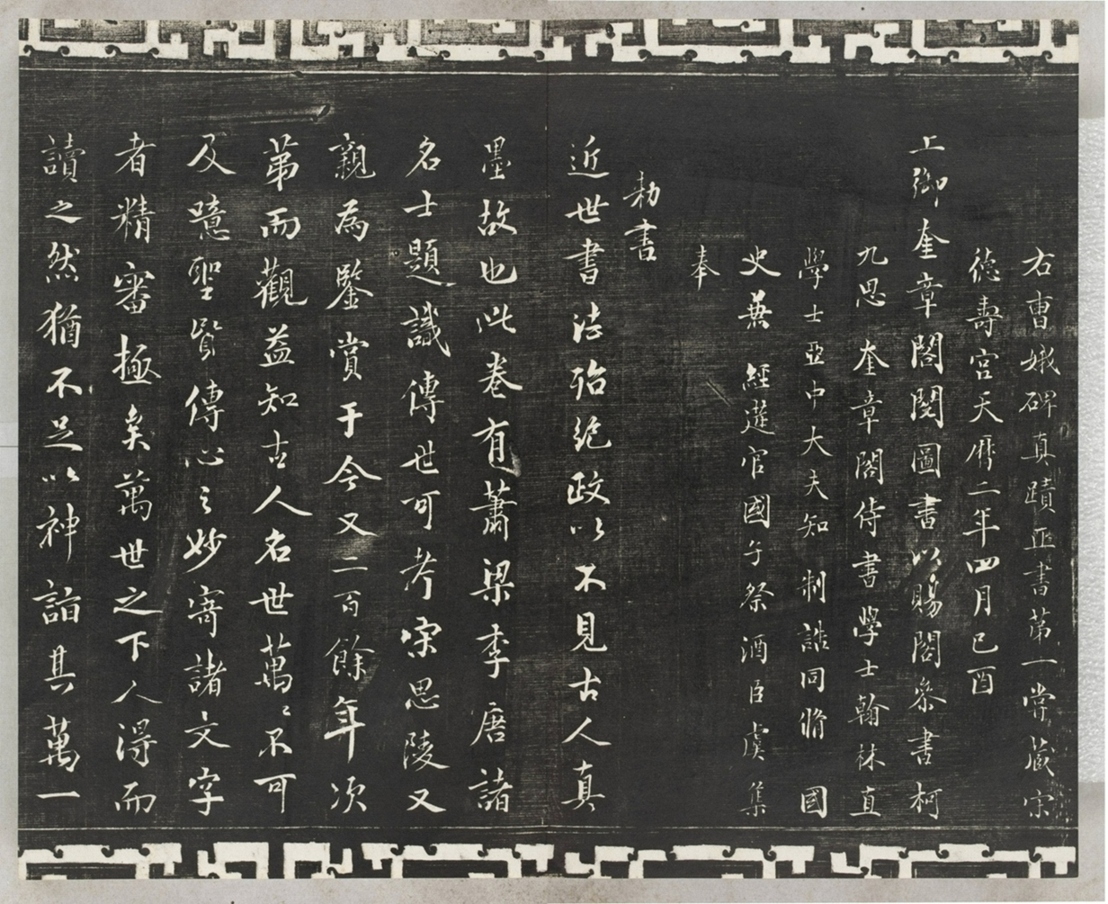 右曹娥碑真蹟正書第一嘗藏宋
德壽宮天曆二年四月己酉
上御奎章閣閱圖書以賜閣參書柯
九思 奎章閣侍書學士翰林直
學士亞中大夫知 制誥同脩 國
史兼 經筵官國子祭酒臣虞集
奉
勅書
近世書法殆絕政以不見古人真
墨故也此卷有蕭梁李唐諸
名士題識傳世可考宋思陵又
親為鑒賞于今又二百餘年次
第而觀益知古人名世萬萬不可
及噫聖賢傳心之妙寄諸文字
者精審極矣萬世之下人得而
讀之然猶不足以神詣其萬一